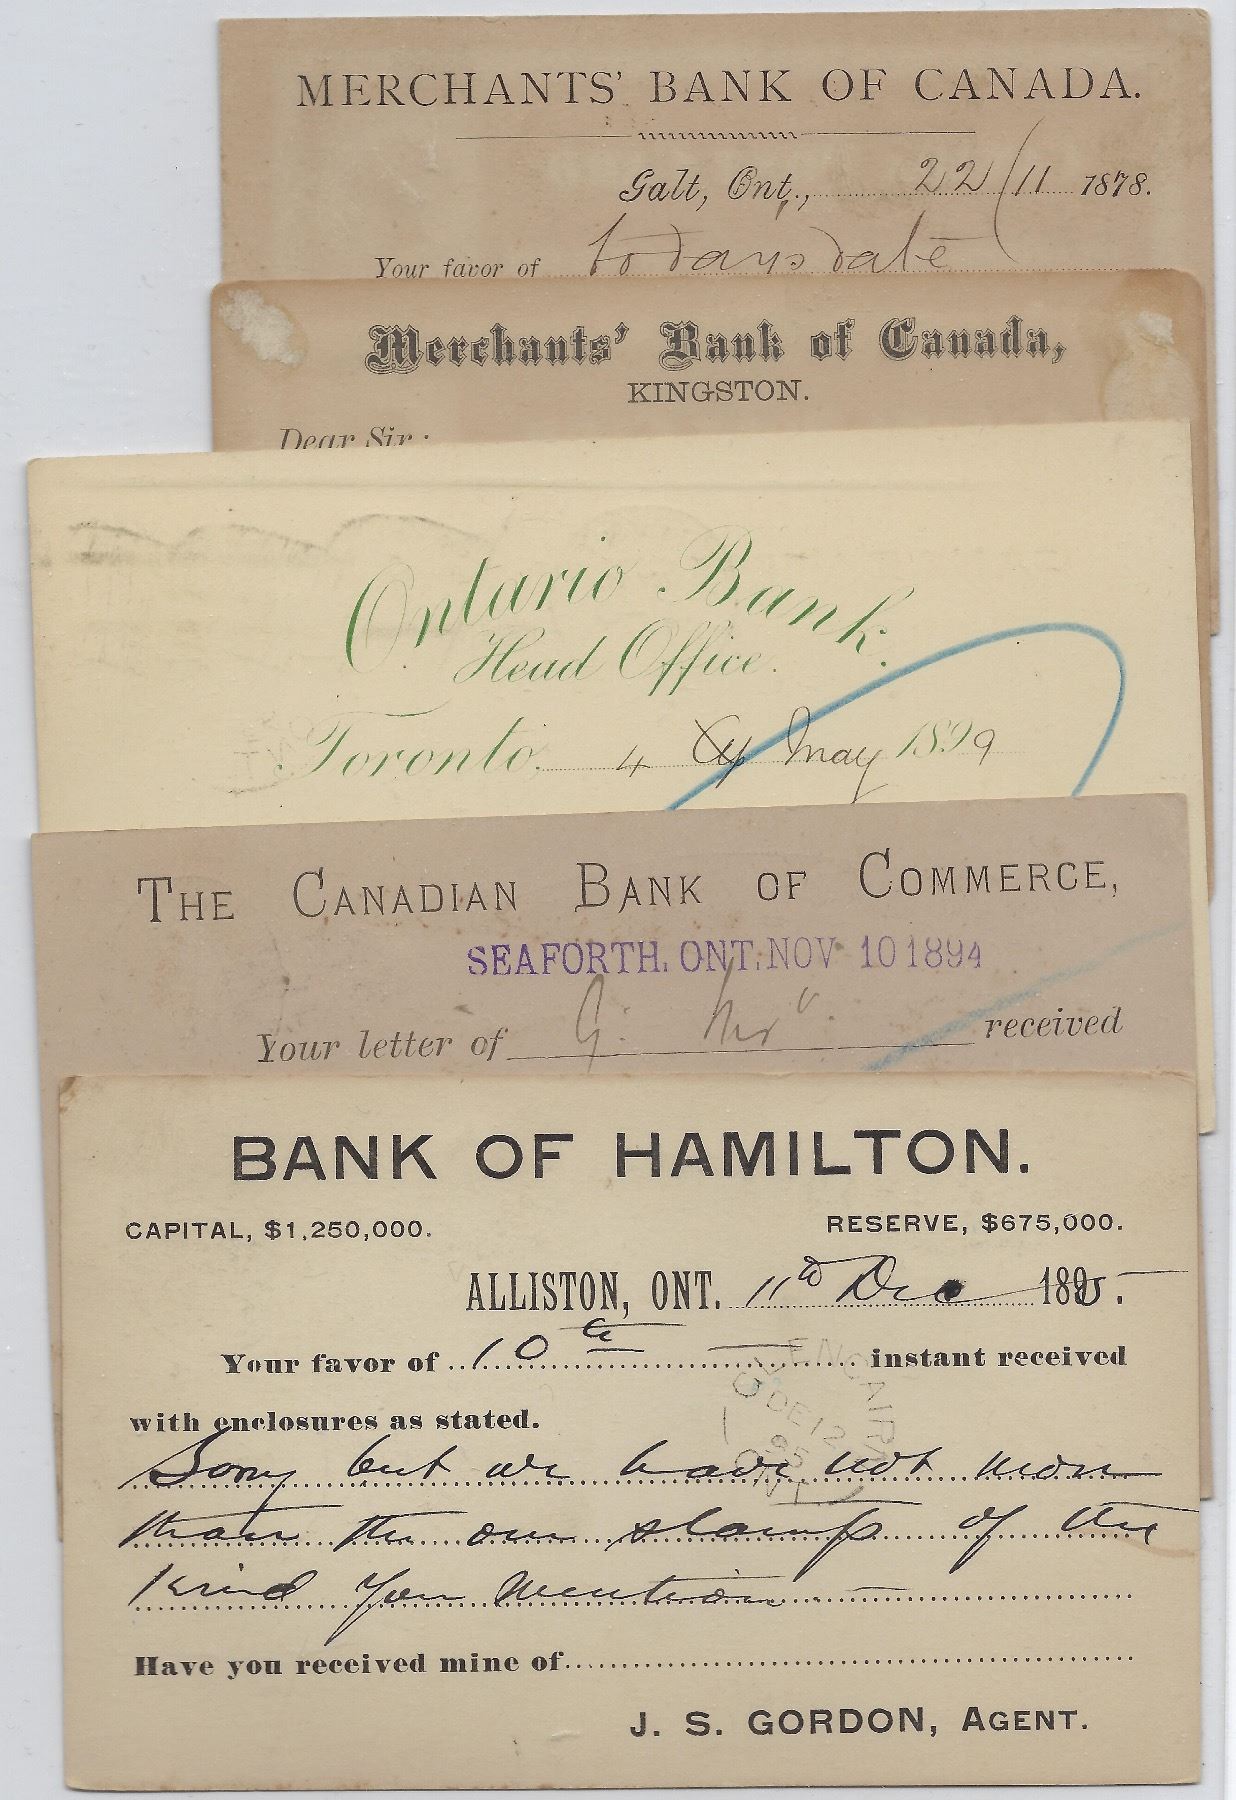 MERCHANTS' BANK OF CANADA.
Galt, Ont., 22/11 1878.
Your favor of todays date
Merchants' Bank of Canada,
KINGSTON.
Dear Sir:
Ontario Bank.
Head Office.
Toronto. 4 May 1899
THE CANADIAN BANK OF COMMERCE,
SEAFORTH, ONT. NOV 10 1894
Your letter of received
BANK OF HAMILTON.
CAPITAL, $1,250,000. RESERVE, $675,000.
ALLISTON, ONT. 11th Dec 1895.
Your favor of 10th instant received
with enclosures as stated.
DE 12
95
ONT
Sorry but we have not more
than the one stamp of the
kind you mention
Have you received mine of
J. S. GORDON, AGENT.